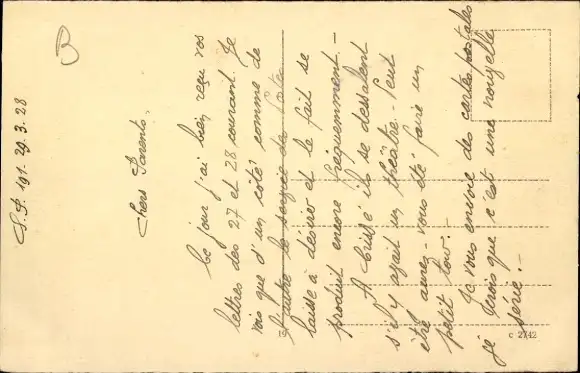 S.P. 191. 29.3.28
Chers Parents,
Ce jour j'ai bien reçu vos
lettres des 27 et 28 courant. Je
vois que d'un côté comme de
l'autre le service des
laisse à désirer et le fait se
produit encore fréquemment. -
A ils se
s'il y avait un théâtre. - Peut
être aurez-vous été faire un
petit tour. -
Je vous envoie des cartes postales
je crois que c'est une nouvelle
série. -
19
C 2742